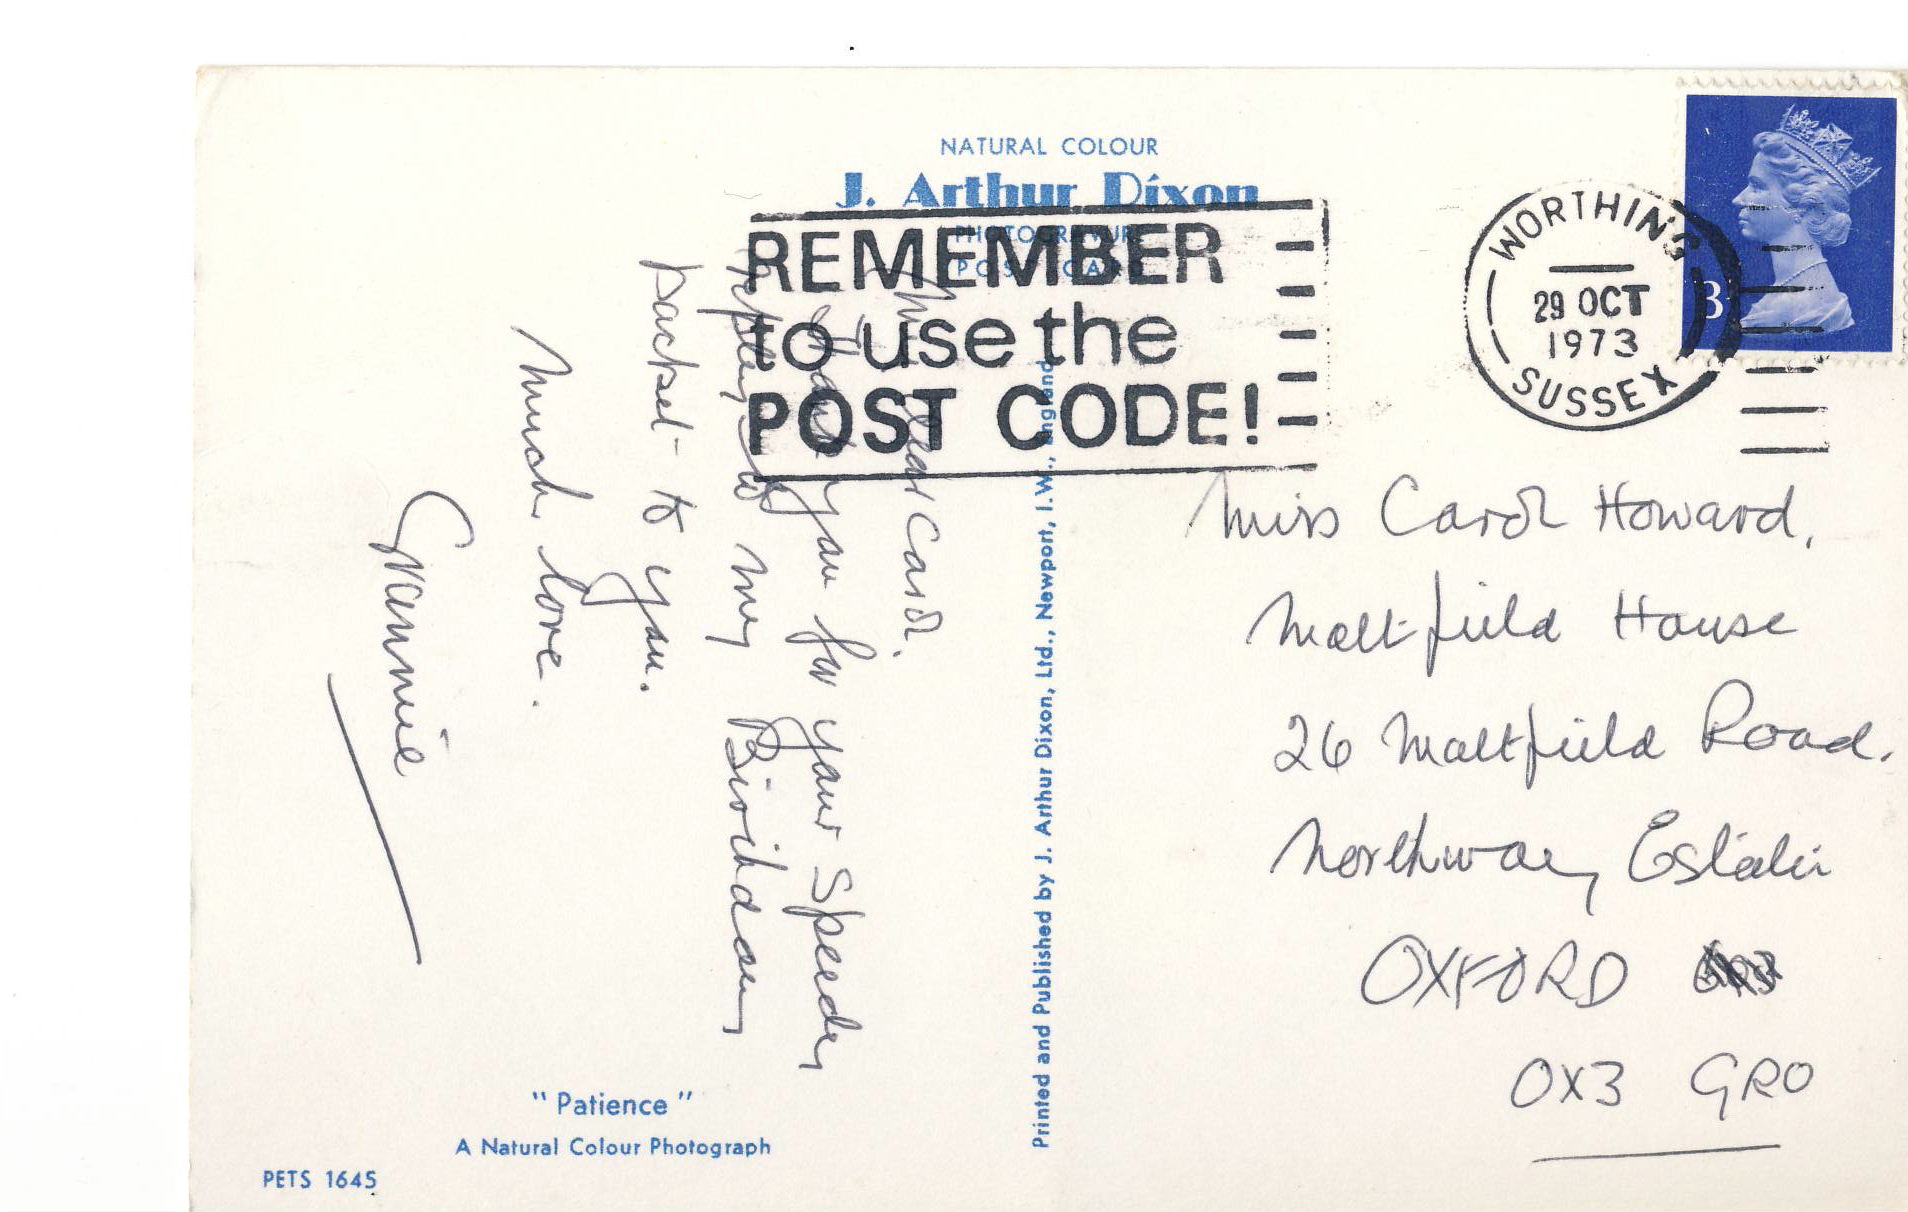 NATURAL COLOUR
J. Arthur Dixon
PHOTOGRAVURE
POST CARD
REMEMBER
to use the
POST CODE!
WORTHING
29 OCT
1973
SUSSEX
3
My dear Carol.
Thank you for your speedy
reply to my Birthday
packet to you.
Much love.
Grannie
Miss Carol Howard,
Maltfield House
26 Maltfield Road.
Northway Estate
OXFORD
OX3 9RO
Printed and Published by J. Arthur Dixon, Ltd., Newport, I.W., England
"Patience"
A Natural Colour Photograph
PETS 1645